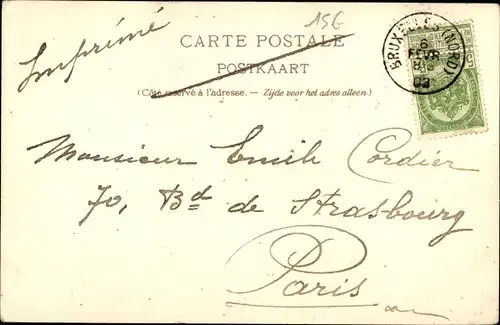 15G
Imprimé
CARTE POSTALE
POSTKAART
(Côté réservé à l'adresse. — Zijde voor het adres alleen.)
BRUXELLES (NORD)
6
FEVR
03
Monsieur Emile Cordier
70, Bd de Strasbourg
Paris